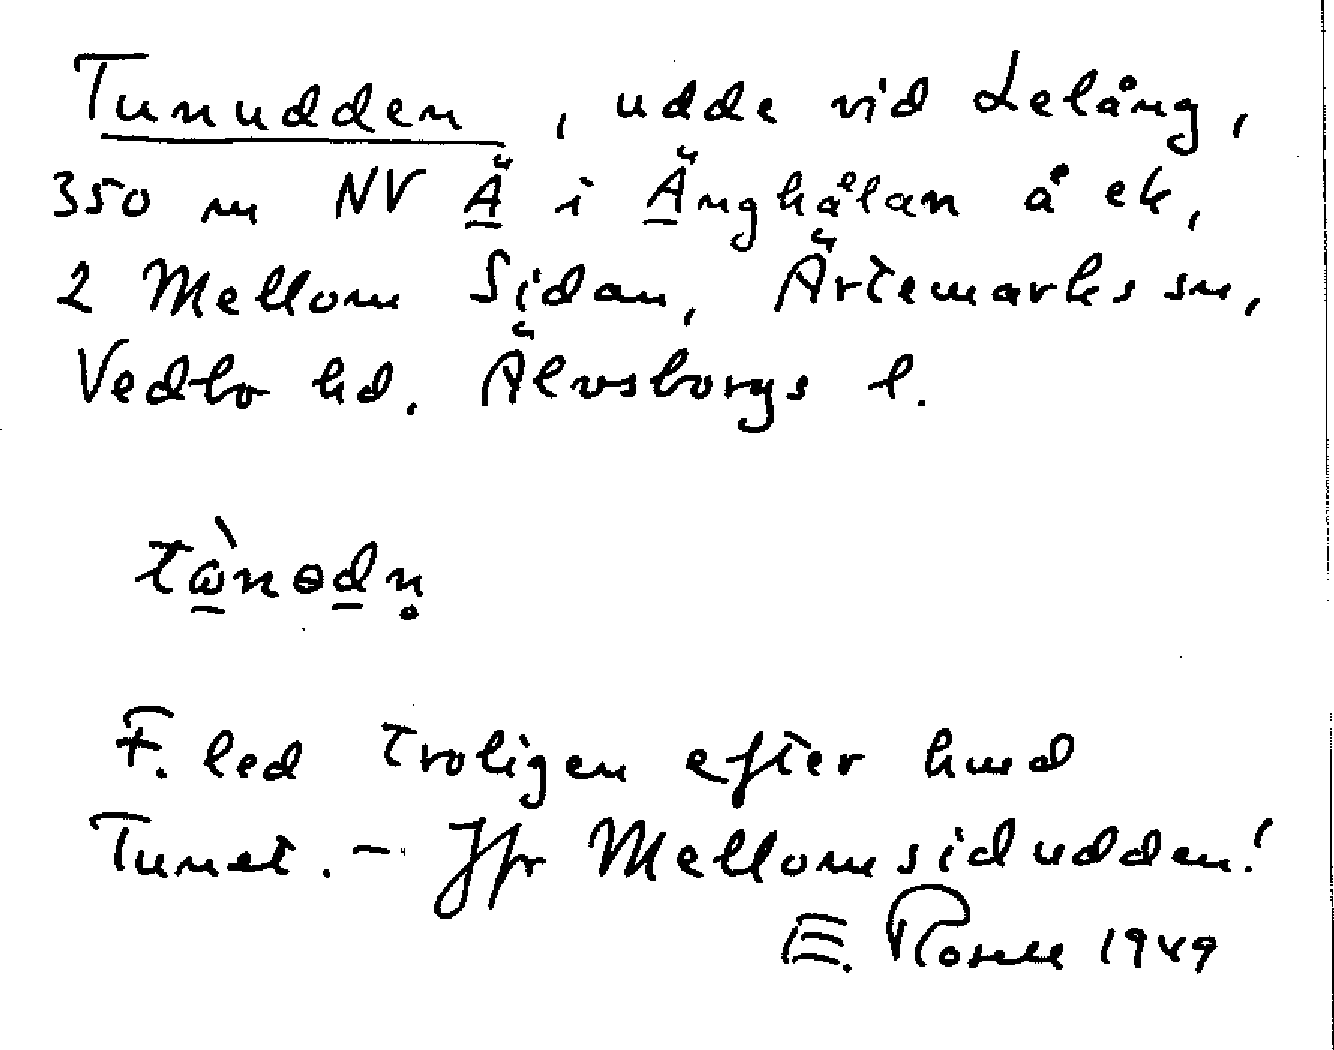 Tunudden, udde vid Lelång,
350 m NV Ä i Änghålan å ek,
2 Mellom Sidan, Ärtemarks sn,
Vedbo hd. Älvsborgs l.
tὼnodn̥
F. led troligen efter hmd
Tunet. - Jfr Mellomsidudden!
E. Rosell 1949